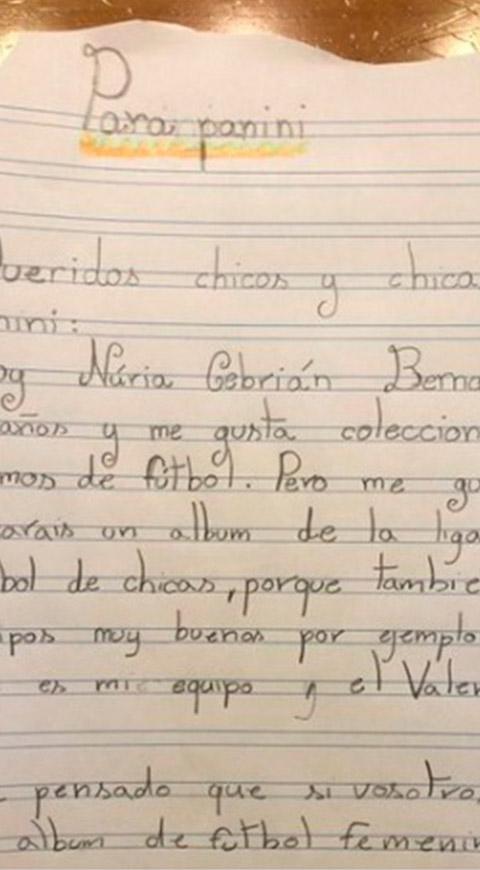 Para panini
ueridos chicos y chica
nini:
oy Núria Cebrián Berna
años y me gusta coleccion
mos de fútbol. Pero me gu
arais un album de la liga
bol de chicas, porque tambie
ipos muy buenos por ejemplo
es mi equipo y el Valen
pensado que si vosotro
album de fútbol femenin